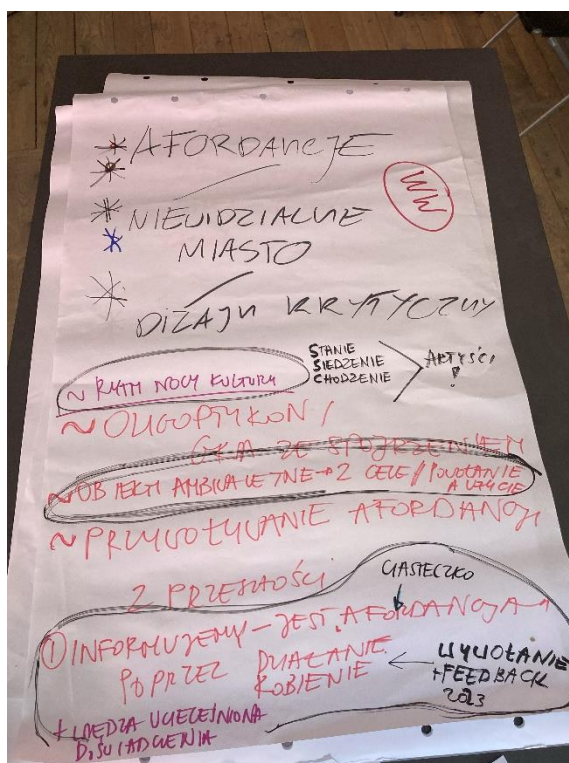 * AFORDANCJE
*
* NIEWIDZIALNE
* MIASTO
WW
* DIZAJN KRYTYCZNY
~ RYTM NOCY KULTURY
STANIE
SIEDZENIE
CHODZENIE
ARTYŚCI
!
~ OLIGOPTYKON /
GRA ZE SPOJRZENIEM
~ OBIEKTY AMBIWALETNE → 2 CELE / POWOŁANIE
A UŻYCIE
~ PRZYWOŁYWANIE AFORDANCJI
Z PRZESZŁOŚCI
CIASTECZKO
① INFORMUJEMY – JEST AFORDANCJA →
POPRZEZ DZIAŁANIE
ROBIENIE
← WYWOŁANIE
+ FEEDBACK
2023
+ WIEDZA UCIELEŚNIONA
DOŚWIADCZENIA